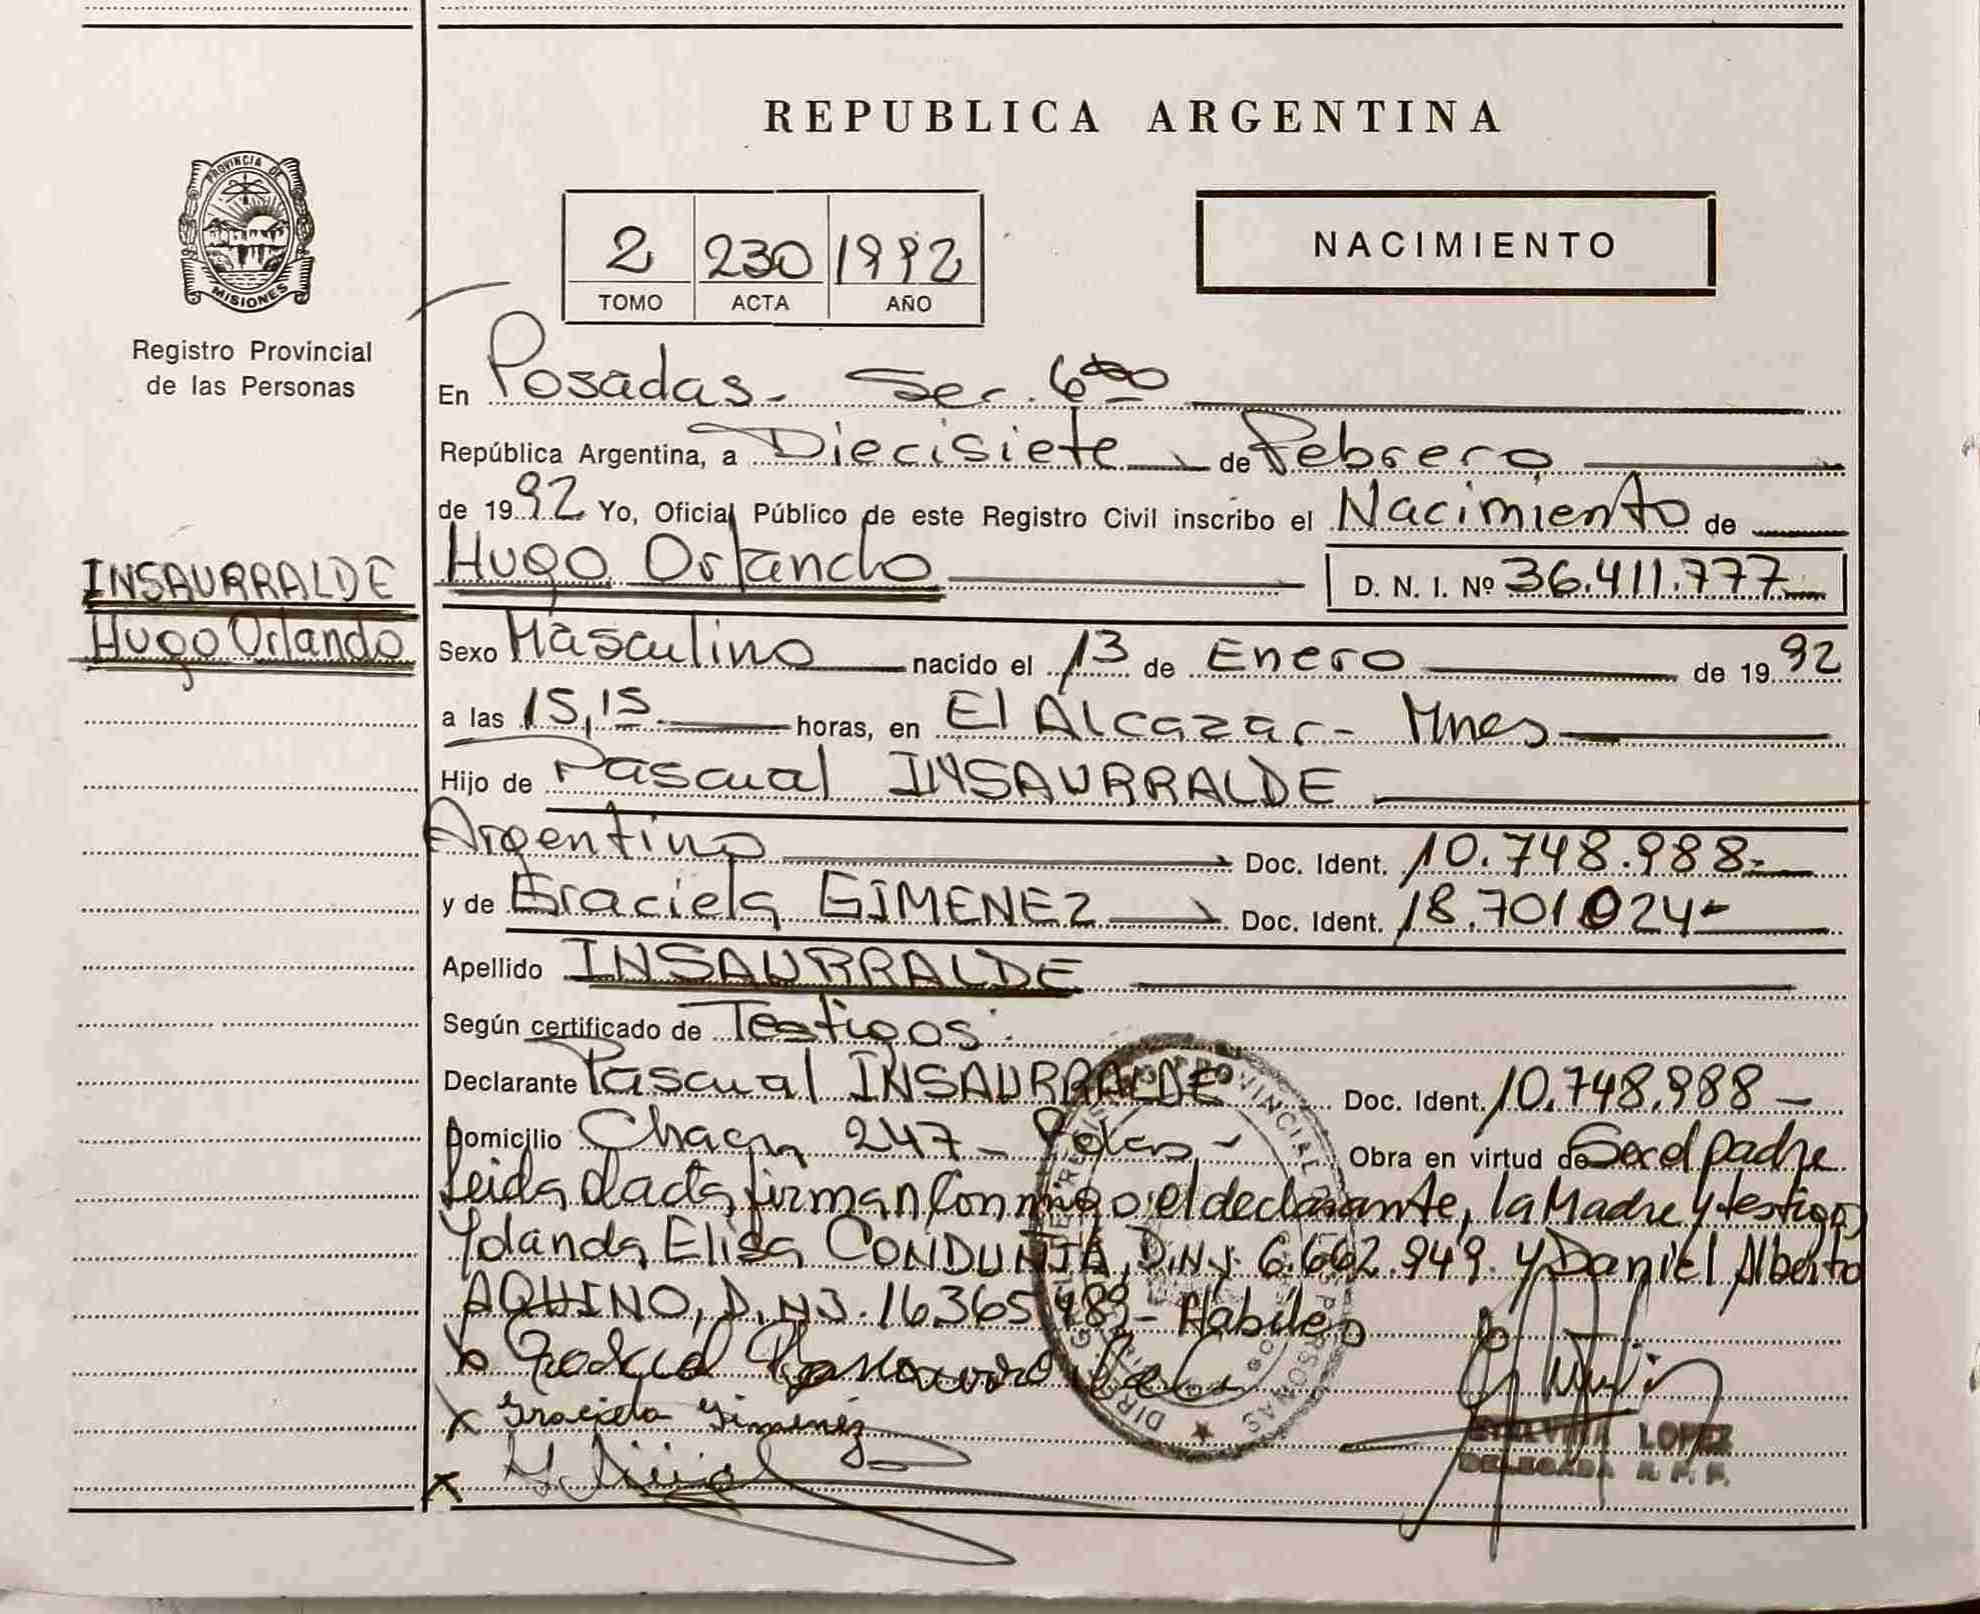 REPUBLICA ARGENTINA
PROVINCIA DE
MISIONES
Registro Provincial
de las Personas
2 230 1992
TOMO ACTA AÑO
NACIMIENTO
En Posadas - Sec. 6
República Argentina, a Diecisiete de Febrero
de 1992 Yo, Oficial Público de este Registro Civil inscribo el Nacimiento de
INSAURRALDE
Hugo Orlando
Hugo Orlando D. N. I. Nº 36.411.777
Sexo Masculino nacido el 13 de Enero de 1992
a las 15,15 horas, en El Alcazar - Mnes
Hijo de Pascual INSAURRALDE
Argentino Doc. Ident. 10.748.988-
y de Graciela GIMENEZ Doc. Ident. 18.701.024-
Apellido INSAURRALDE
Según certificado de Testigos
Declarante Pascual INSAURRALDE Doc. Ident. 10.748.988-
Domicilio 247 - Obra en virtud de Ser el padre
Leida el acta, firman conmigo el declarante, la Madre y testigos
Yolanda Elisa D.N.I. 6.662.949. y Daniel Alberto
AQUINO, D.N.I. 16365489- Habiles
Graciela Gimenez
LOPEZ
DELEGADA R. P. P.